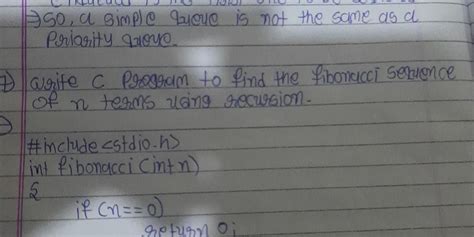 → So, a simple queue is not the same as a
Priority queue.
7) Write C Program to find the fibonacci sequence
of n terms using recursion.
→
#include <stdio.h>
int fibonacci (int n)
{
if (n==0)
return 0;